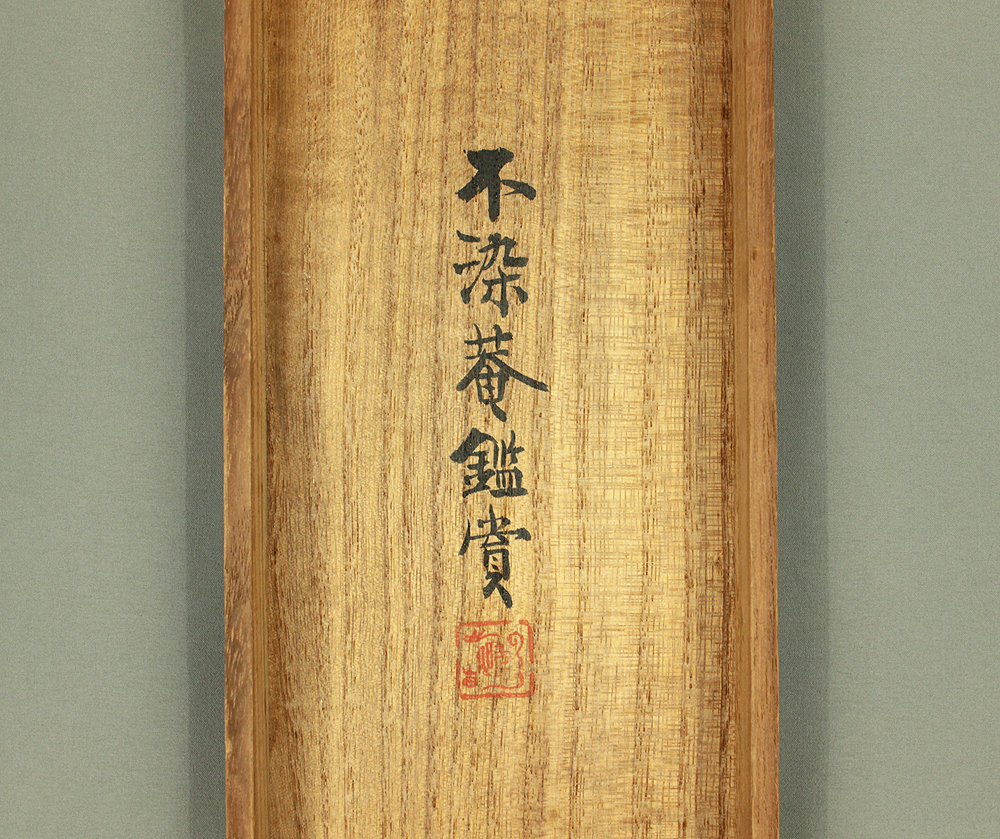 不染菴鑑賞